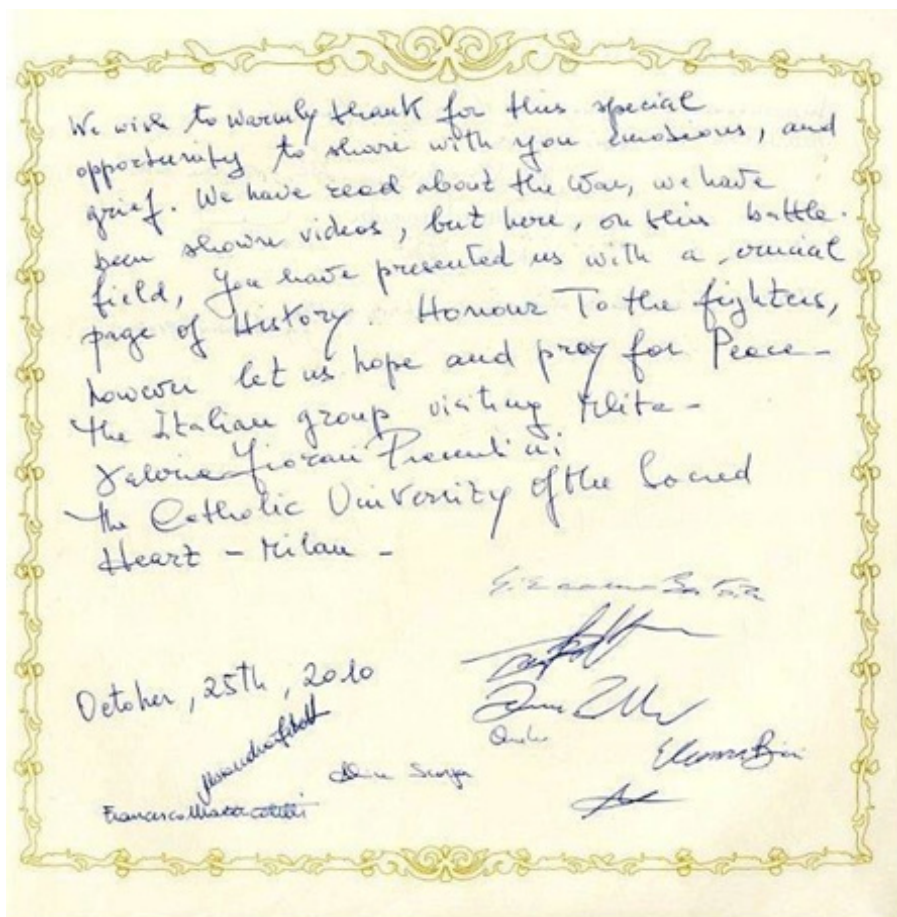 We wish to warmly thank for this special
opportunity to share with you emotions, and
grief. We have read about the War, we have
been shown videos, but here, on this battle-
field, you have presented us with a crucial
page of History. Honour To the fighters,
however let us hope and pray for Peace-
The Italian group visiting Mlita-
Fiorani
The Catholic University of the Sacred
Heart - Milan -
October, 25th, 2010
Francesco